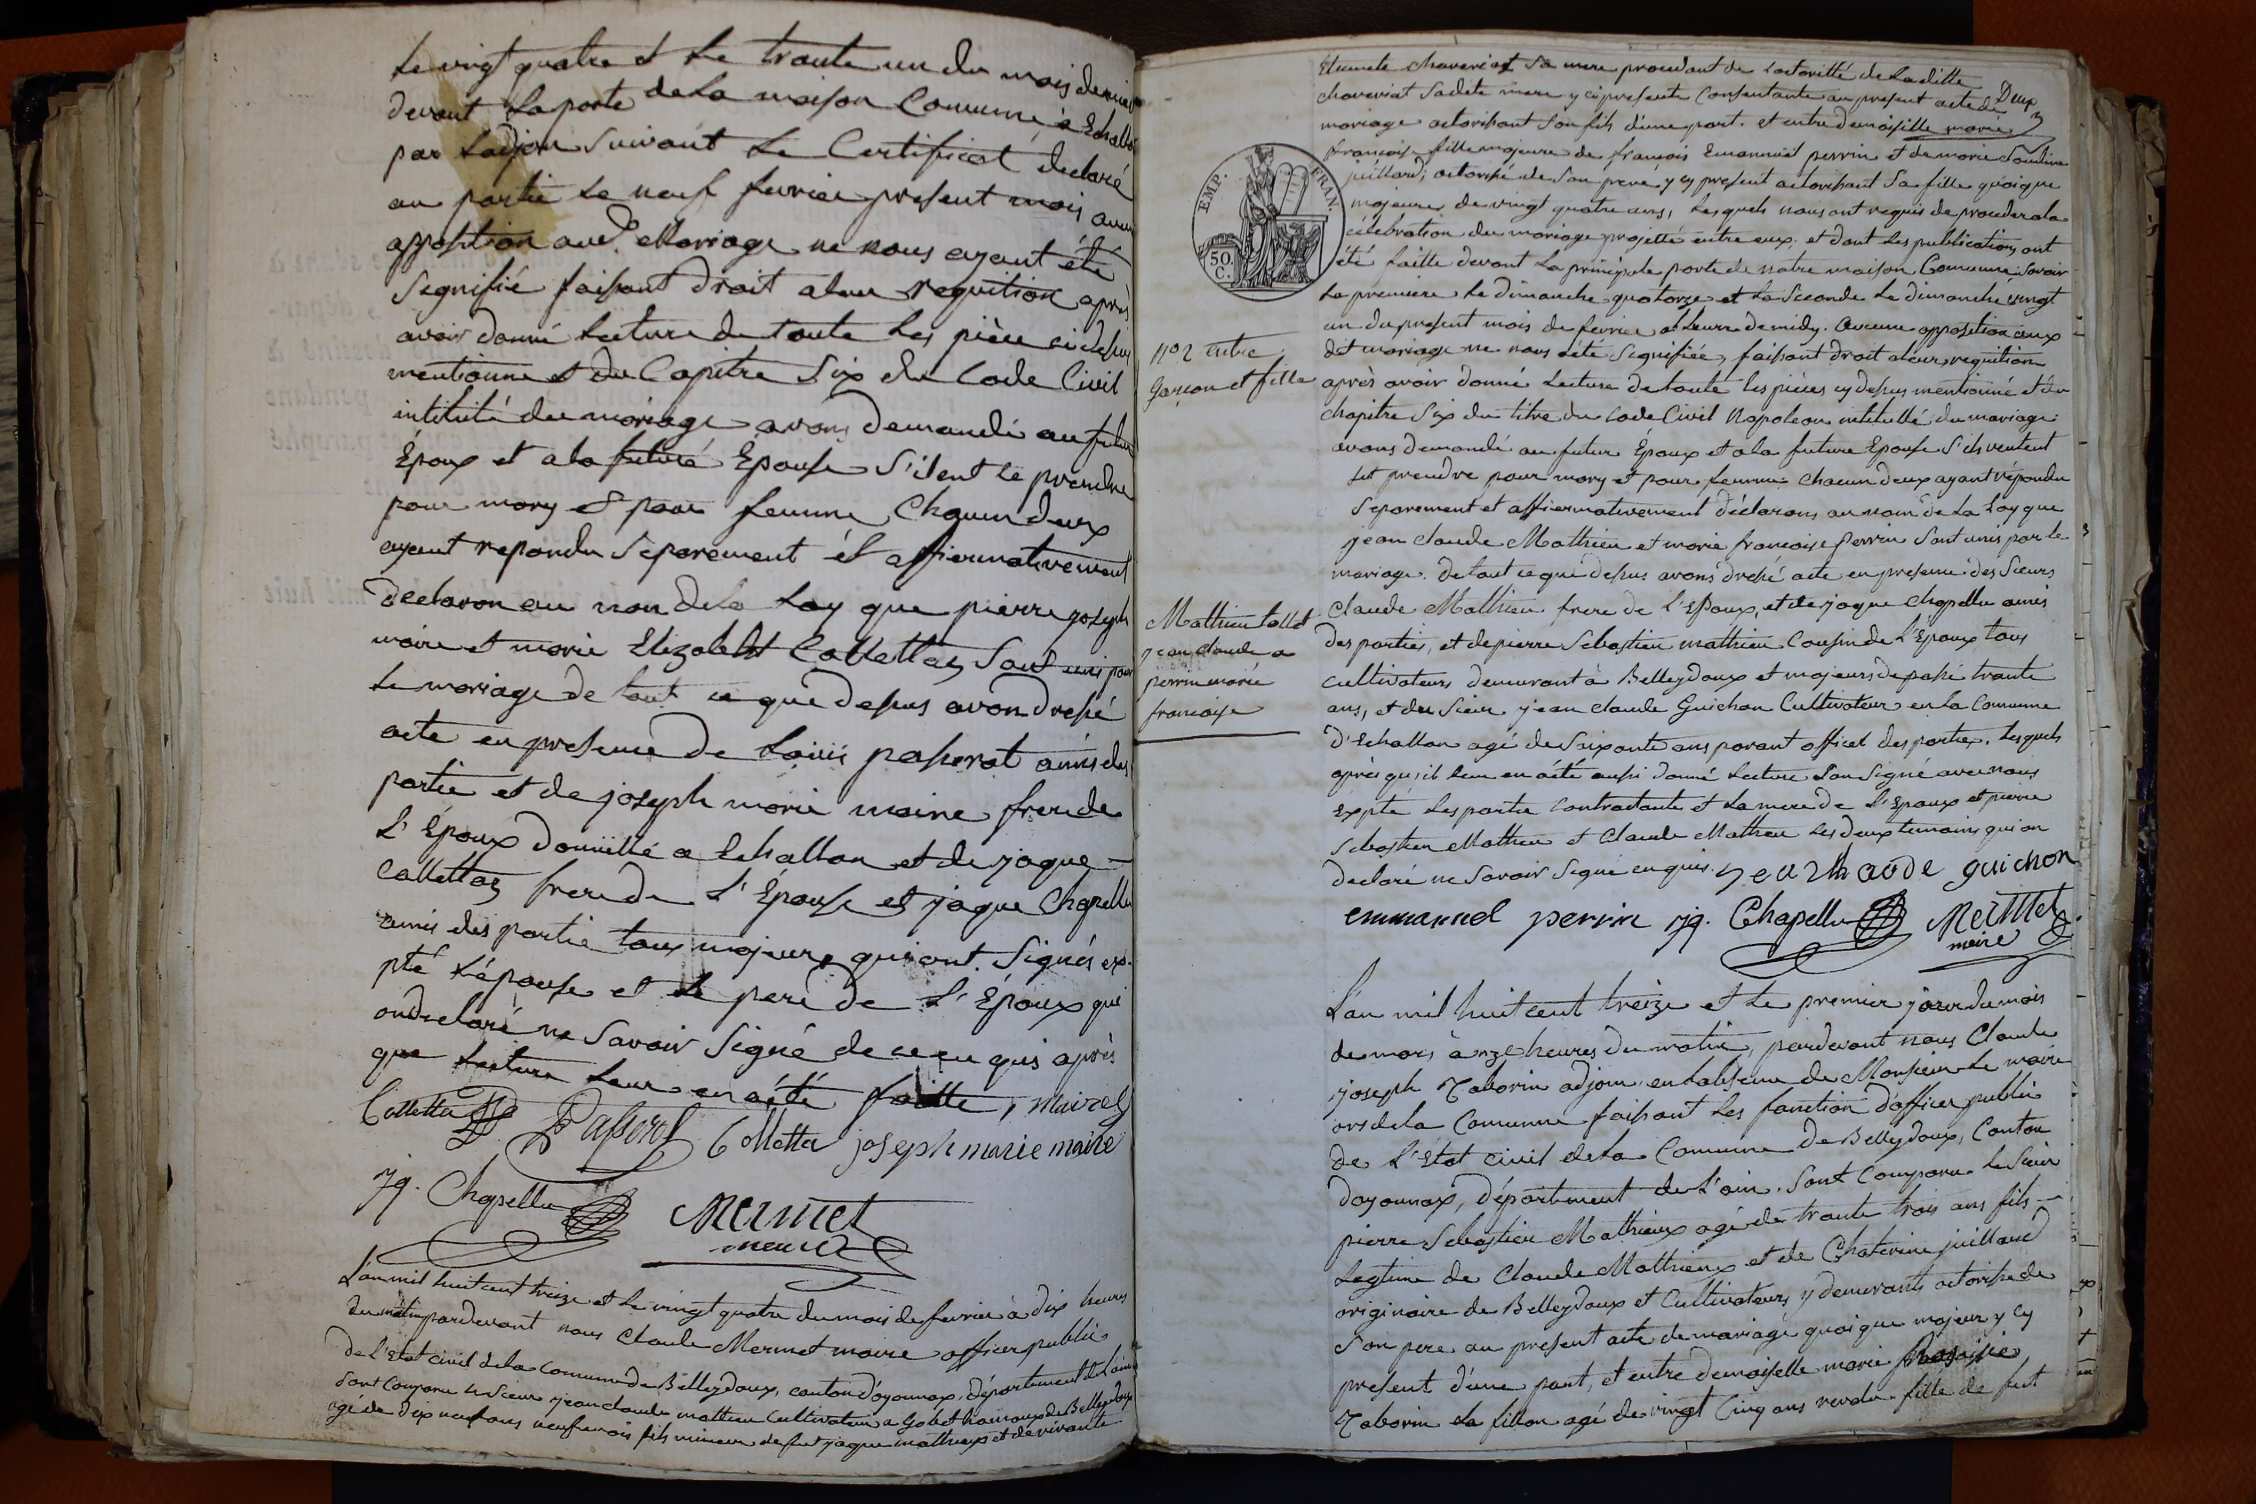 Le vingt quatre et Le trante un du mois dernier
devant La porte de La maison Comune, à Echallon
par Ladjoin suivant Le Certificat declaré
au partie Le neuf fevrier present mois aucun
apposition aud. Mariage ne nous ayant été
Signifié faisant droit a leur requition après
avoir donné Lecture de toute Les pièce ci desus
mentionné et du Capitre Six du Code Civil
intitulé du mariage avons demandé au futur
Époux et a la future Épouse S'ilent le prendre
pour mary et pour femme, Chaqun deux
ayant repondu Séparement et affiermativement
Declaron au nom de la Loy que pierre joseph
maire et marie Elizabeth Collettaz Sont unis par
Le mariage de tout ce que desus avon dresé
acte en presence de Louis paserat amis des
partie et de joseph marie maire frere de
L'Époux domicillié a Echallon et de jaque
Collettaz frere de L'Épouse et jaque Chapellu
amis des partie toux majeur, qui ont Signés ex-
pté L'épouse et Le pere de L'Époux qui
ondeclaré ne Savoir Signé de ce en quis après
que Lecture Leur en a été faitte, maire
Colletta Passerat Colletta joseph marie maire
Jq. Chapellu Mermet
maire
L'an mil huit cent treize et Le vingt quatre du mois de fevrier à dix heures
du matin pardevant nous Claude Mermet maire officier public
de L'Etat civil de la comune de Belleydoux, canton d'oyonnax, département de L'ain
Sont Comparu Le Sieur jean claude mathieu Cultivateur a Gobet hamaux de Belleydoux
agé de dix neuf ans neuf mois fils mineur de feut jaque mathieux et de vivante
Etiennete chaveriat Sa mere procedant de Lactoritté de Laditte
Deux
chaveriat Sadite mere y ci presente Consentante au present acte de
mariage actorisant Son fils d'une part. et entre demoiselle marie
françoise fille majeure de françois Emannuel perrin et de marie Claudine
juillard, actorisé de Son pere y cy present actorisant Sa fille quoique
majeure de vingt quatre ans, Lesquels nous ont requis de proceder a la
célébration du mariage projetté entre eux, et dont Les publications ont
été faitte devant La principale porte de notre maison Comune Savoir
La premiere Le dimanche quatorze et La Seconde Le dimanche vingt
un du present mois de fevrier a L'heure de midy. Aucune apposition aux
dit mariage ne nous a été Signifiée, faisant droit a leur, requition
après avoir donné Lecture de toute les pièces cy desus mentionné et du
chapitre Six du titre du Code Civil Napoleon intitullé du mariage
avons demandé au futur Époux et a la future Epouse S'ils veulent
Set prendre pour mary et pour femme Chacun deux ayant répondu
Séparement et affiermativement déclarons au nom de La Loy que
jean claude Mathieu et marie françoise Perrin Sont unis par le
mariage. De tout ce que desus avons dresé acte en presence des Sieurs
Claude Mathieu frere de L'Epoux, et de jaque Chapellu amis
des parties, et de pierre Sebastien mathieu Cousin de L'Epoux tous
cultivateurs demeurant à Belleydoux et majeurs de pasé trante
ans, et du Sieur jean claude Guichon Cultivateur en La Comune
D'Echallon agé de Soixante ans parant des parties. Lesquels
après qu'il leur en a été aussi donné Lecture L'on Signé avec nous
Expté Les partie Contractante et La mere de L'Epoux et pierre
Sebastien Mathieu et Claude Mathieu Les deux temoins qui on
declaré ne Savoir Signé enquis. jean Claude guichon
emmanuel perrin Jq. Chapellu Mermet
maire
N° 2 entre
Garçon et fille
Mathieu
jean claude a
perrin marie
françoise
L'an mil huit cent treize et Le premier jour du mois
de mars à onze heures du matin, pardevant nous Claude
joseph Taborin adjoin, en Labsence de Monsieur Le maire
de La Comune faisant Les fonction d'officier public
de L'État civil de La Comune de Belleydoux, Canton
doyonnax, département de L'ain. Sont Comparu Le Sieur
pierre Sebastien Mathieux agé de trante trois ans fils
Legitime de Claude Mathieux et de Chaterine juillard
originaire de Belleydoux et Cultivateurs y demeurants actorisé de
Son pere au present acte de mariage quoique majeur y cy
present d'une part, et entre demoiselle marie
Taborin La fillon agé de vingt Cinq ans revolu fille de feut
EMP. FRAN.
50 C.